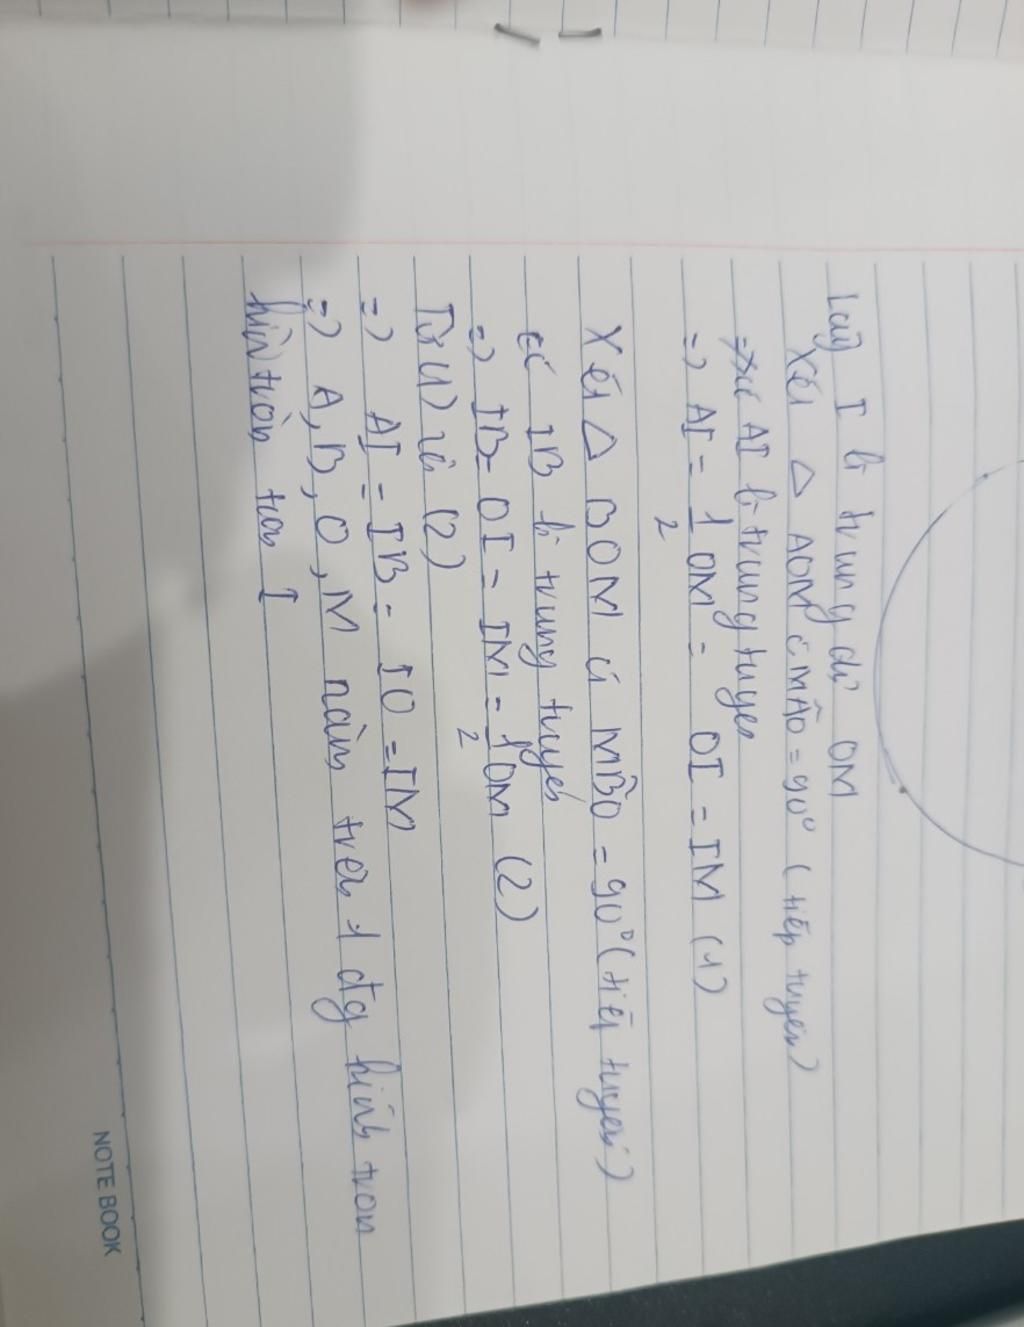 Lấy I là trung đ' OM
Xét △ AOM có MÂO = 90° (tiếp tuyến)
=> có AI là trung tuyến
=> AI = 1/2 OM = OI = IM (1)
Xét △ BOM có MB̂O = 90° (tiếp tuyến)
có IB là trung tuyến
=> IB = OI = IM = 1/2 OM (2)
Từ (1) và (2)
=> AI = IB = IO = IM
=> A, B, O, M nằm trên 1 đg hình tròn
hình tròn tâm I
NOTE BOOK